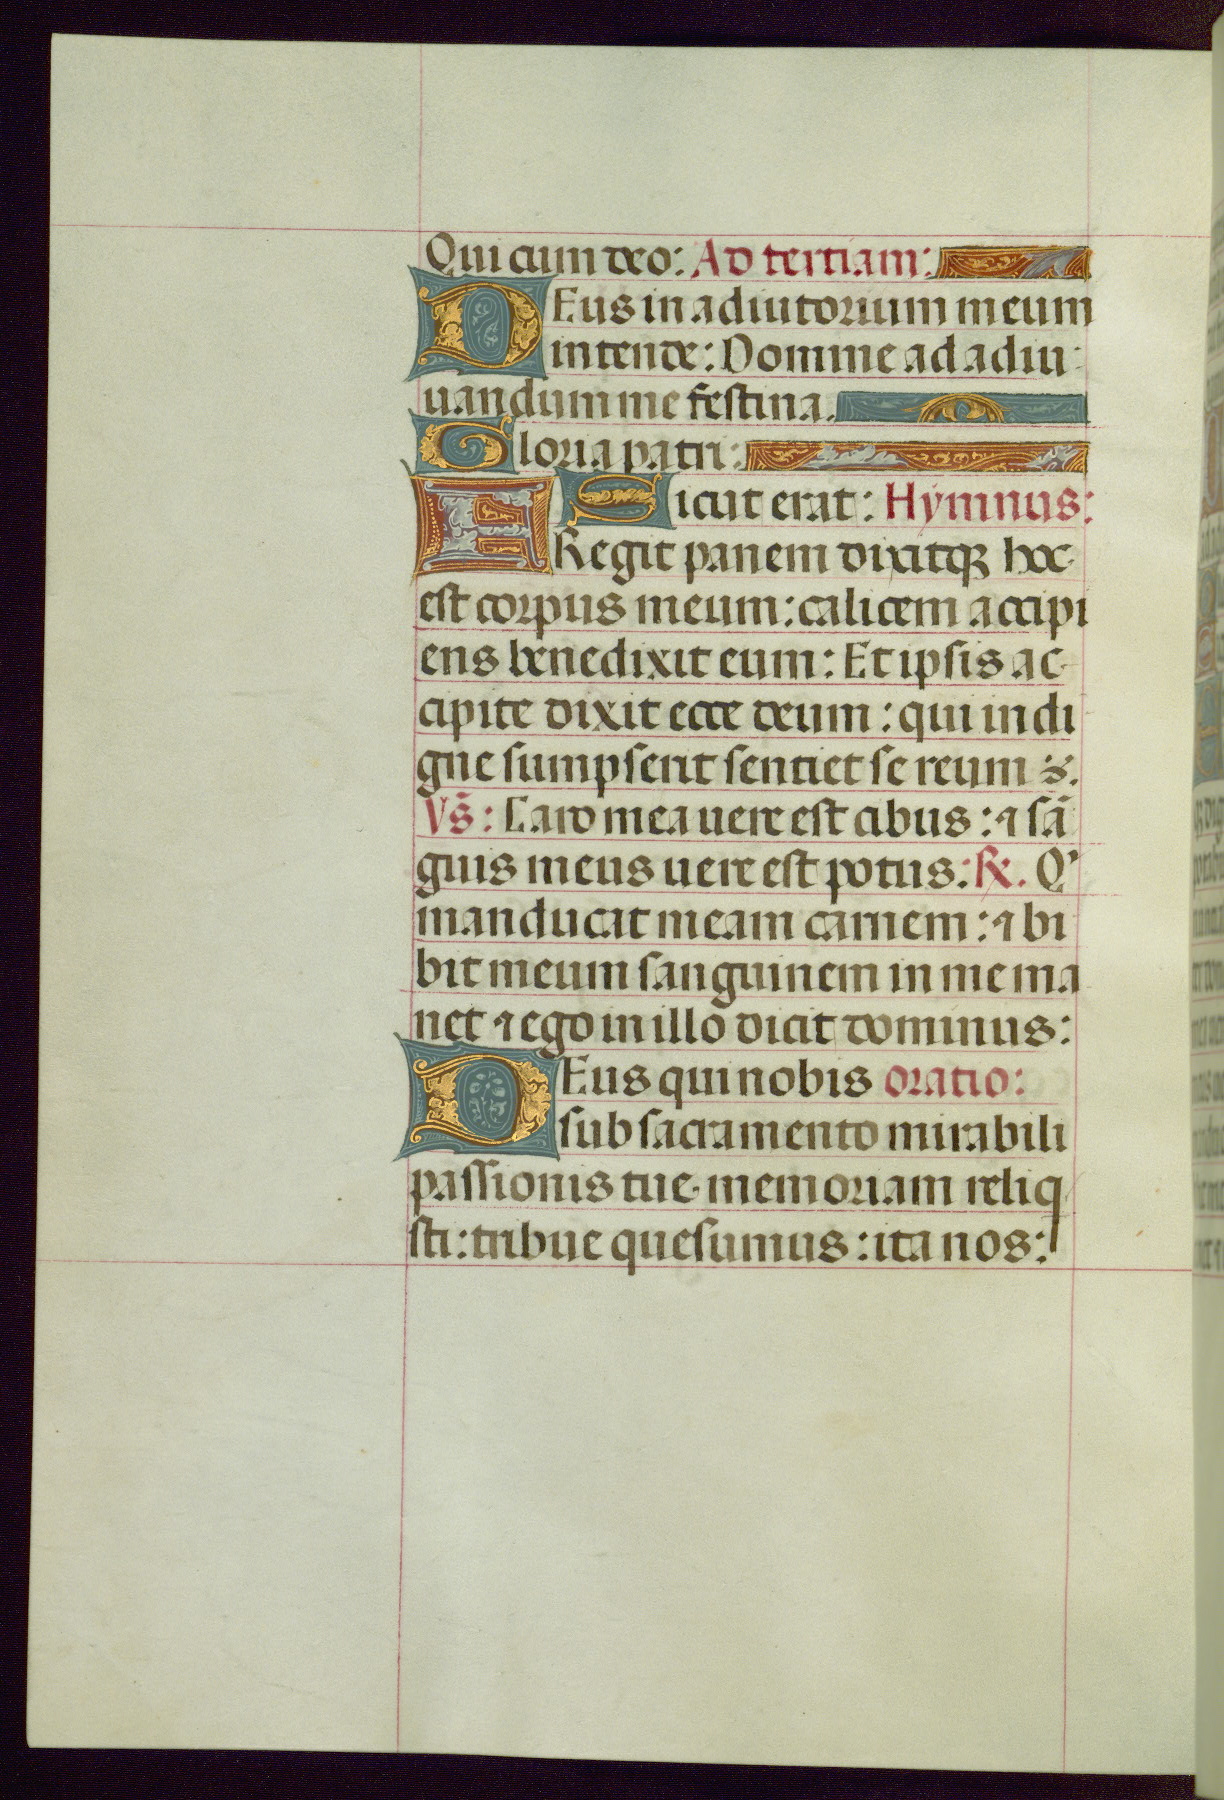 Qui cum deo: Ad tertiam:
DEus in adiutorium meum
intende: Domine ad adiu
uandum me festina.
Gloria patri:
Sicut erat: Hymnus:
FRegit panem dixitqꝫ hoc
est corpus meum: calicem accipi
ens benedixit eum: Et ipsis ac-
cipite dixit ecce deum: qui indi
gne sumpserit sentiet se reum s.
Vs̃: Caro mea uere est cibus: ⁊ sã
guis meus uere est potus: ℞. Q'
manducat meam carnem: ⁊ bi
bit meum sanguinem in me ma
net ⁊ ego in illo dicit dominus:
DEus qui nobis oratio:
sub sacramento mirabili
passionis tue memoriam reliq
sti: tribue quesumus: ita nos: